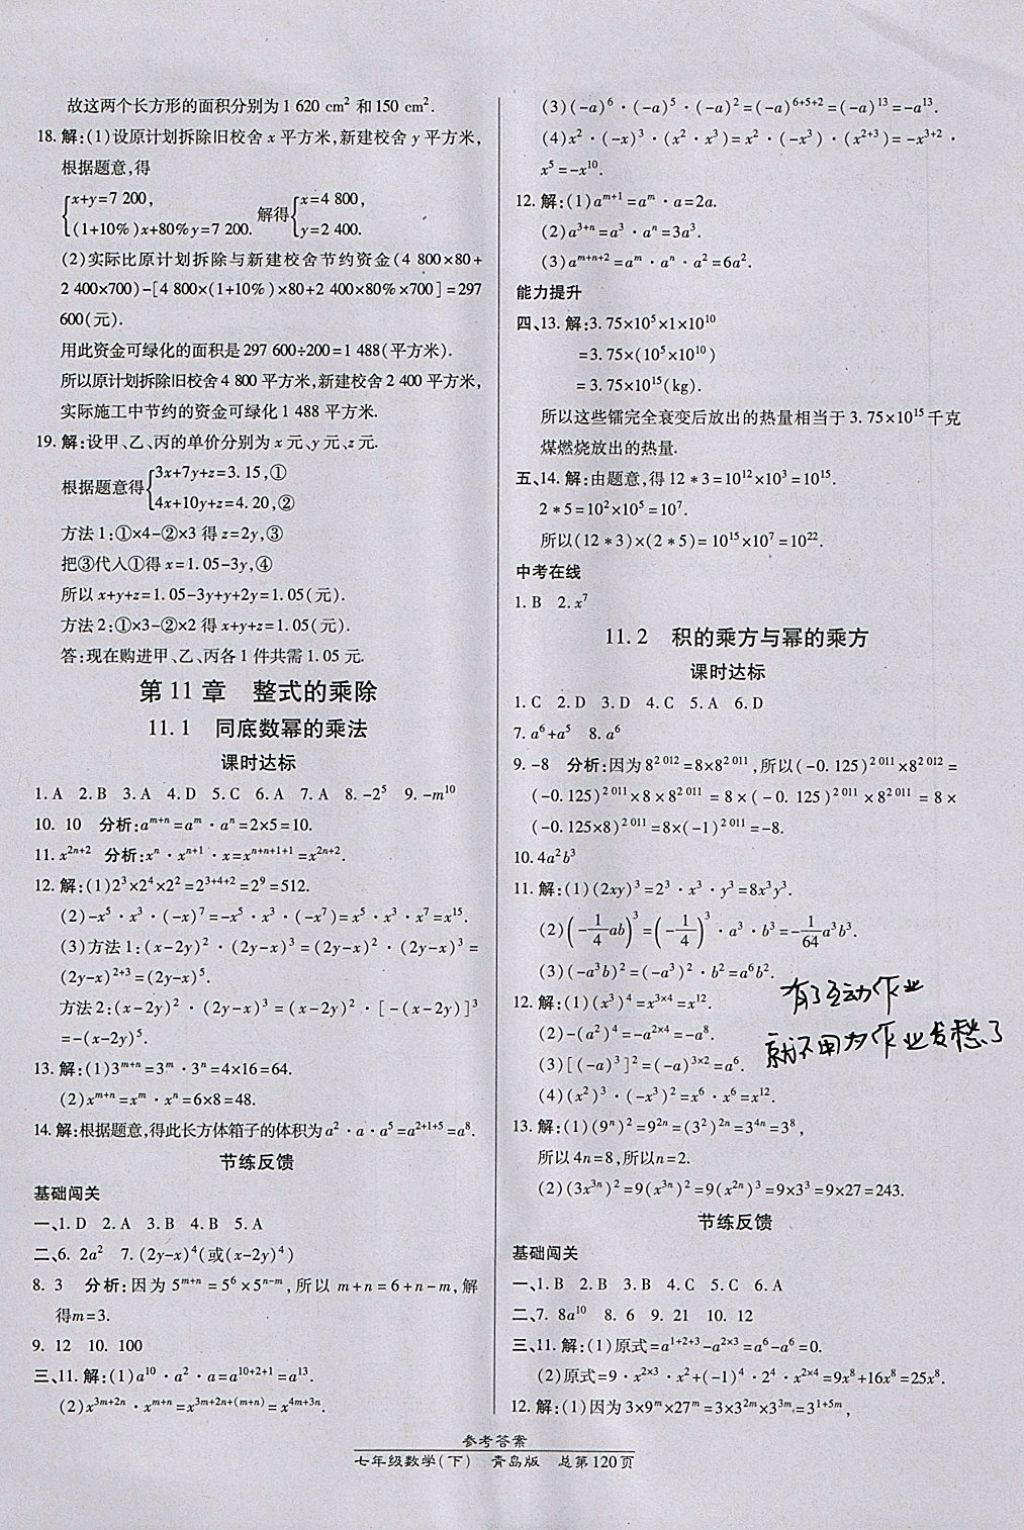 故这两个长方形的面积分别为1 620 cm² 和150 cm².
18. 解:(1)设原计划拆除旧校舍 x 平方米,新建校舍 y 平方米,
根据题意,得
{x+y=7 200, (1+10%)x+80%y=7 200. 解得{x=4 800, y=2 400.
(2)实际比原计划拆除与新建校舍节约资金(4 800×80+
2 400×700)-[4 800×(1+10%)×80+2 400×80%×700]=297
600(元).
用此资金可绿化的面积是297 600÷200=1 488(平方米).
所以原计划拆除旧校舍4 800 平方米,新建校舍2 400 平方米,
实际施工中节约的资金可绿化1 488 平方米.
19. 解:设甲、乙、丙的单价分别为 x 元、y 元、z 元.
根据题意得{3x+7y+z=3.15,① 4x+10y+z=4.20,②
方法1:①×4-②×3 得 z=2y,③
把③代入①得 x=1.05-3y,④
所以 x+y+z=1.05-3y+y+2y=1.05(元).
方法2:①×3-②×2 得 x+y+z=1.05(元).
答:现在购进甲、乙、丙各1件共需1.05元.
第 11 章 整式的乘除
11.1 同底数幂的乘法
课时达标
1. A 2. B 3. A 4. D 5. C 6. A 7. A 8. -2⁵ 9. -m¹⁰
10. 10 分析:a^{m+n}=a^m·a^n=2×5=10.
11. x^{2n+2} 分析:x^n·x^{n+1}·x=x^{n+n+1+1}=x^{2n+2}.
12. 解:(1)2³×2⁴×2²=2^{3+4+2}=2⁹=512.
(2)-x⁵·x³·(-x)⁷=-x⁵·x³·(-x⁷)=x⁵·x³·x⁷=x¹⁵.
(3)方法1:(x-2y)²·(2y-x)³=(2y-x)²·(2y-x)³=
(2y-x)^{2+3}=(2y-x)⁵.
方法2:(x-2y)²·(2y-x)³=(x-2y)²·[-(x-2y)]³
=-(x-2y)⁵.
13. 解:(1)3^{m+n}=3^m·3^n=4×16=64.
(2)x^{m+n}=x^m·x^n=6×8=48.
14. 解:根据题意,得此长方体箱子的体积为a²·a·a⁵=a^{2+1+5}=a⁸.
节练反馈
基础闯关
一、1. D 2. A 3. B 4. B 5. A
二、6. 2a² 7. (2y-x)⁴(或(x-2y)⁴)
8. 3 分析:因为5^{m+n}=5⁶×5^{n-m},所以 m+n=6+n-m,解
得m=3.
9. 12 10. 100
三、11. 解:(1)a¹⁰·a²·a=a^{10+2+1}=a¹³.
(2)x^{3m+2n}·x^{m+n}=x^{3m+2n+(m+n)}=x^{4m+3n}.
(3)(-a)⁶·(-a)⁵·(-a)²=(-a)^{6+5+2}=(-a)¹³=-a¹³.
(4)x²·(-x)³·(x²·x³)=x²·(-x³)·(x^{2+3})=-x^{3+2}·
x⁵=-x¹⁰.
12. 解:(1)a^{m+1}=a^m·a=2a.
(2)a^{3+n}=a³·a^n=3a³.
(3)a^{m+n+2}=a^m·a^n·a²=6a².
能力提升
四、13. 解:3.75×10⁵×1×10¹⁰
=3.75×(10⁵×10¹⁰)
=3.75×10¹⁵(kg).
所以这些镭完全衰变后放出的热量相当于3.75×10¹⁵千克
煤燃烧放出的热量.
五、14. 解:由题意,得12*3=10¹²×10³=10¹⁵.
2*5=10²×10⁵=10⁷.
所以(12*3)×(2*5)=10¹⁵×10⁷=10²².
中考在线
1. B 2. x⁷
11.2 积的乘方与幂的乘方
课时达标
1. C 2. D 3. D 4. C 5. A 6. D
7. a⁶+a⁵ 8. a⁶
9. -8 分析:因为8^{2 012}=8×8^{2 011},所以(-0.125)^{2 011}×8^{2 012}=
(-0.125)^{2 011}×8×8^{2 011}=8×(-0.125)^{2 011}×8^{2 011}=8×
(-0.125×8)^{2 011}=8×(-1)^{2 011}=-8.
10. 4a²b³
11. 解:(1)(2xy)³=2³·x³·y³=8x³y³.
(2)(-1/4 ab)³=(-1/4)³·a³·b³=-1/64 a³b³.
(3)(-a³b)²=(-a³)²·b²=a⁶b².
有了互动作业
就不用为作业发愁了
12. 解:(1)(x³)⁴=x^{3×4}=x¹².
(2)-(a²)⁴=-a^{2×4}=-a⁸.
(3)[(-a)³]²=(-a)^{3×2}=a⁶.
(4)(x²)³·(-x³)²=x⁶·x⁶=x¹².
13. 解:(1)(9^n)²=9^{2n}=(3²)^{2n}=3^{4n}=3⁸,
所以4n=8,所以n=2.
(2)(3x^{3n})²=9(x^{3n})²=9(x^{2n})³=9×3³=9×27=243.
节练反馈
基础闯关
一、1. B 2. B 3. B 4. C 5. C 6. A
二、7. 8a¹⁰ 8. 6 9. 21 10. 12
三、11. 解:(1)原式=a^{1+2+3}-a^{2×3}=a⁶-a⁶=0.
(2)原式=9·x^{2×3}·x²+(-1)⁴·2⁴·x^{2×4}=9x⁸+16x⁸=25x⁸.
12. 解:(1)因为3×9^m×27^m=3×3^{2m}×3^{3m}=3^{1+5m},
参考答案
七年级数学(下) 青岛版 总第120页